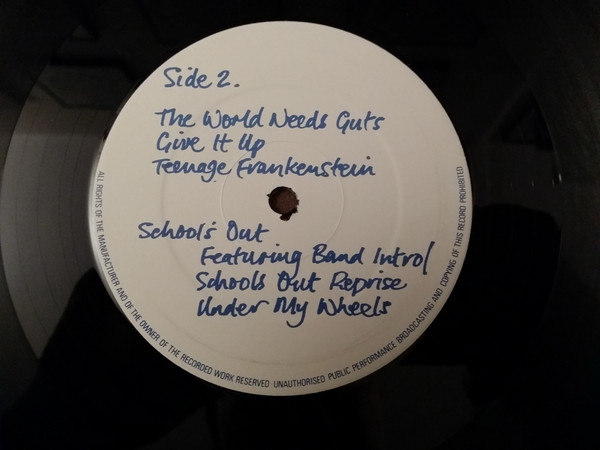 Side 2.
The World Needs Guts
Give It Up
Teenage Frankenstein
School's Out
Featuring Band Intro/
Schools Out Reprise
Under My Wheels
ALL RIGHTS OF THE MANUFACTURER AND OF THE OWNER OF THE RECORDED WORK RESERVED UNAUTHORISED PUBLIC PERFORMANCE BROADCASTING AND COPYING OF THIS RECORD PROHIBITED